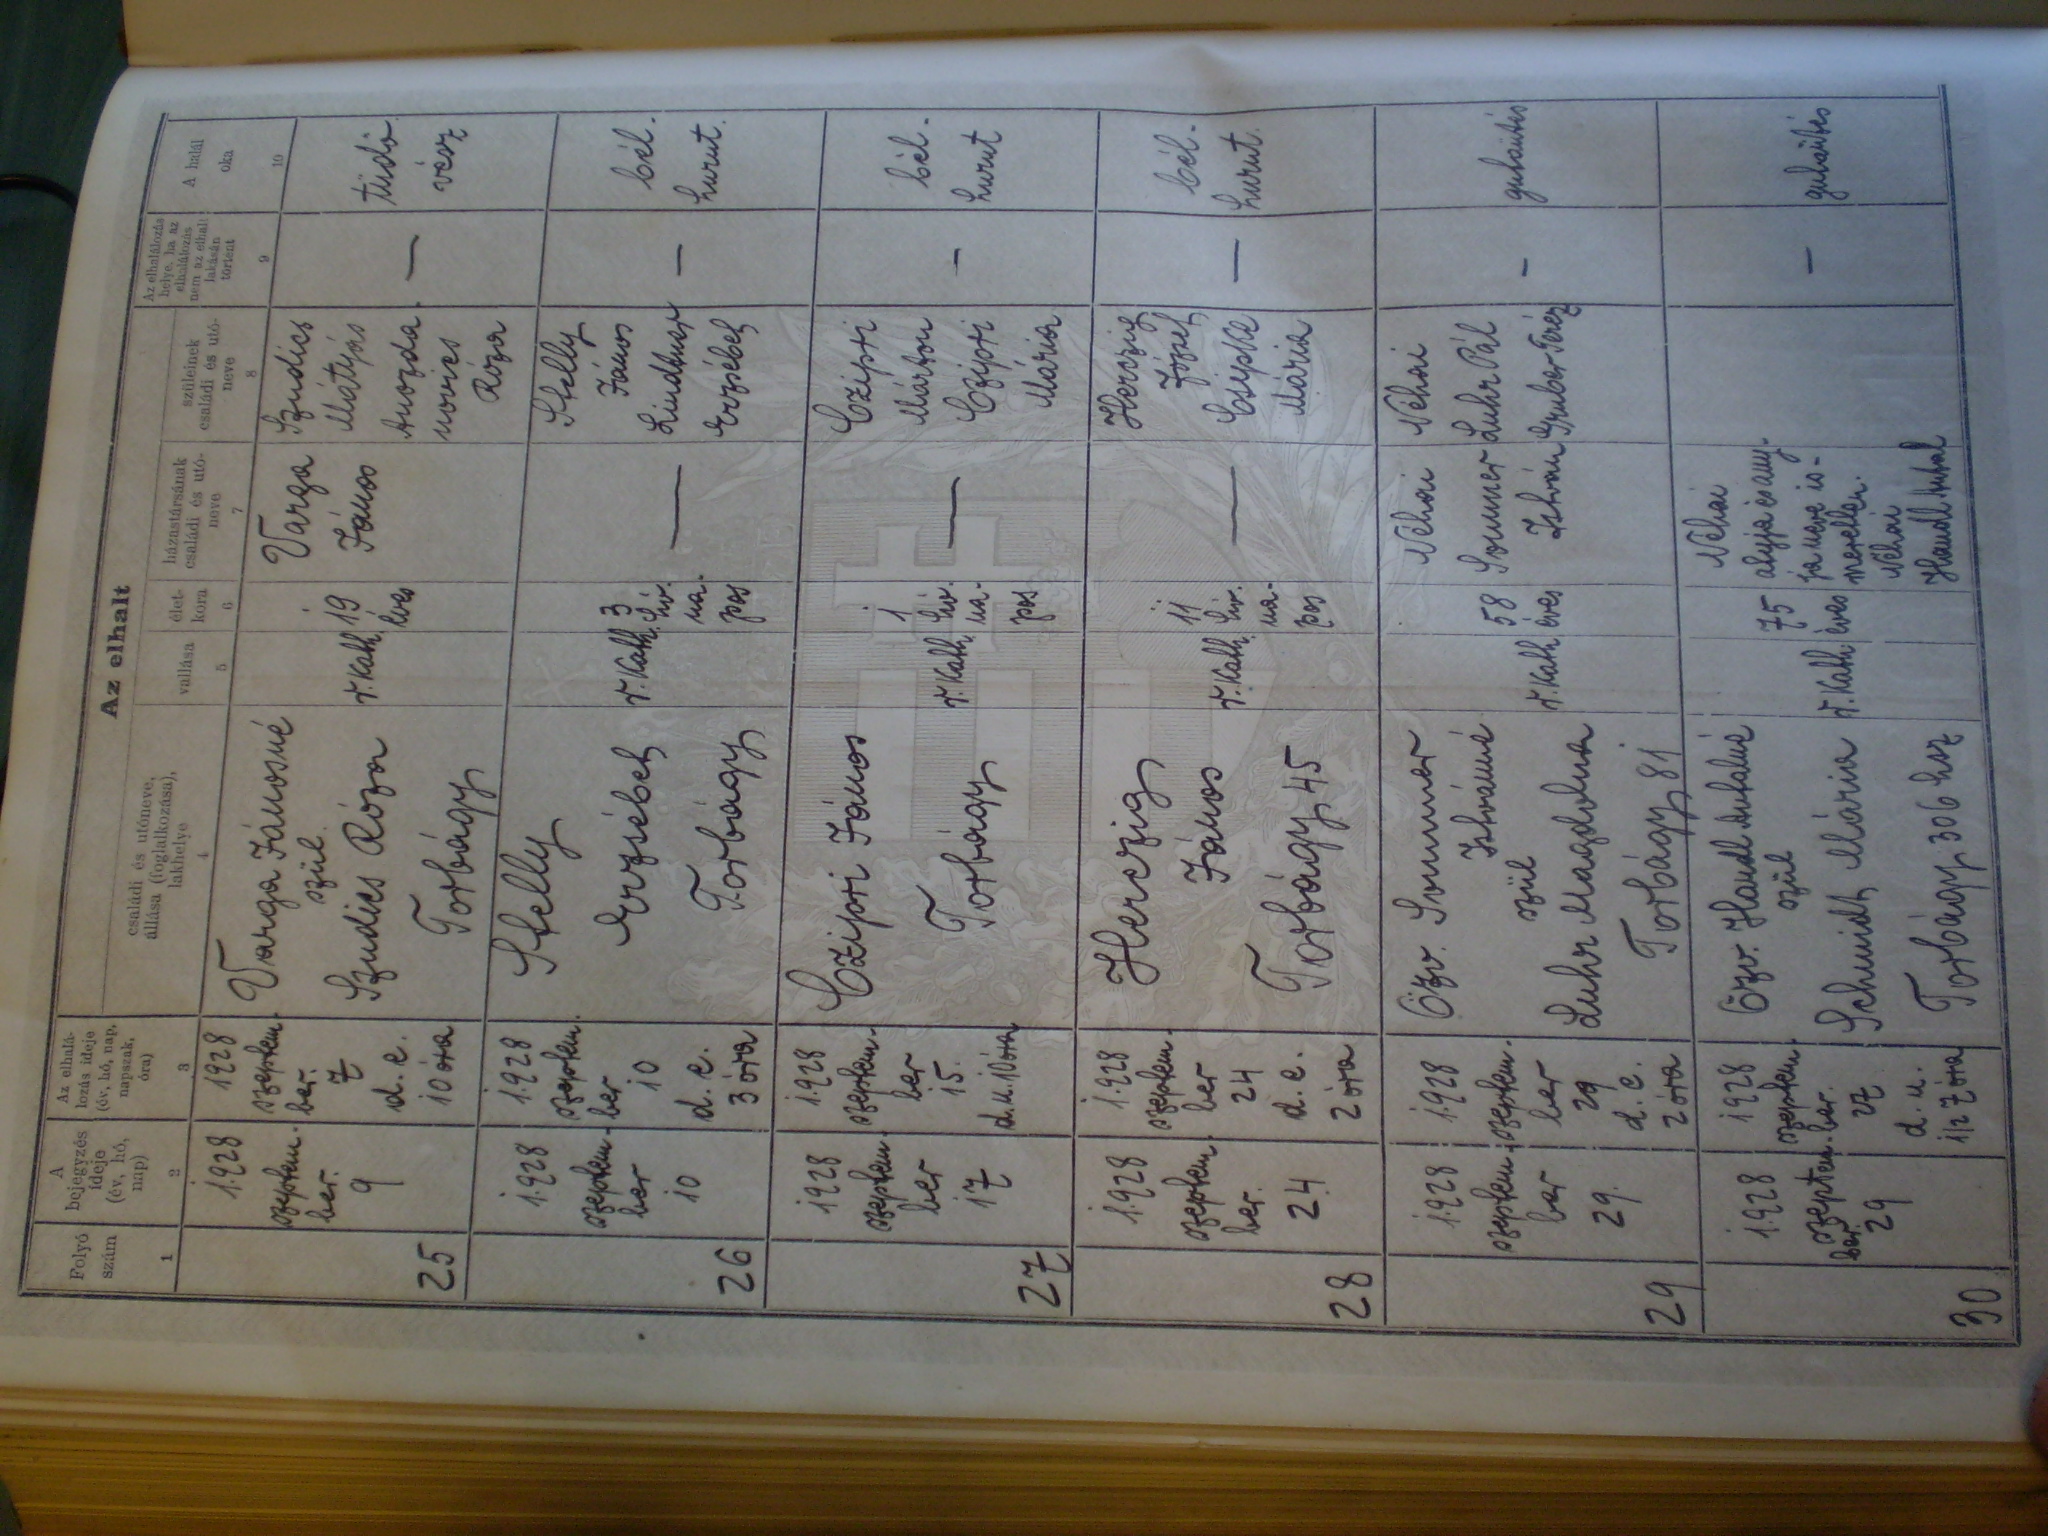 Az elhalt
Folyó
szám
A
bejegyzés
ideje
(év, hó,
nap)
Az elhalá-
lozás ideje
(év, hó, nap,
napszak,
óra)
családi és utóneve,
állása (foglalkozása),
lakhelye
vallása
élet-
kora
házastársának
családi és utó-
neve
szüleinek
családi és utó-
neve
Az elhalálozás
helye, ha az
elhalálozás
nem az elhalt
lakásán
történt
A halál
oka
1
2
3
4
5
6
7
8
9
10
25
1928
szeptem-
ber.
9
1928
szeptem-
ber.
7
d. e.
10 óra
Varga Jánosné
szül.
Szudics Róza
Torbágy
r. kath.
19
éves
Varga
János
Szudics
Mátyás
Róza
—
tüdő-
vész
26
1928
szeptem-
ber
10
1928
szeptem-
ber
10
d. e.
3 óra
Stelly
Erzsébet
Torbágy
r. kath.
3
hó-
na-
pos
—
Stelly
János
Lindtner
Erzsébet
—
bél-
hurut.
27
1928
szeptem-
ber
17
1928
szeptem-
ber
15.
d. u. 10 óra
Czipri János
Torbágy
r. kath.
1
hó-
na-
pos
—
Czipri
Márton
Czipri
Mária
—
bél-
hurut
28
1928
szeptem-
ber.
24
1928
szeptem-
ber
24
d. e.
2 óra
Herczig
János
Torbágy 45
r. kath.
11
hó-
na-
pos
—
Herczig
József
Csipke
Mária
—
bél-
hurut.
29
1928
szeptem-
ber
29.
1928
szeptem-
ber
29
d. e.
2 óra
Özv. Sommer
Istvánné
szül
Luhr Magdolna
Torbágy 81
r. kath
58
éves
Néhai
Sommer
István
Néhai
Luhr Pál
Gruber Teréz
—
gutaütés
30
1928
szeptem-
ber
29
1928
szeptem-
ber.
27
d. u.
1/2 7 óra
Özv. Haudl Antalné
szül
Schmidt Mária
Torbágy 306 hsz
r. kath
75
éves
Néhai
atyja és any-
ja neve is-
meretlen.
Néhai
Haudl Antal
—
gutaütés